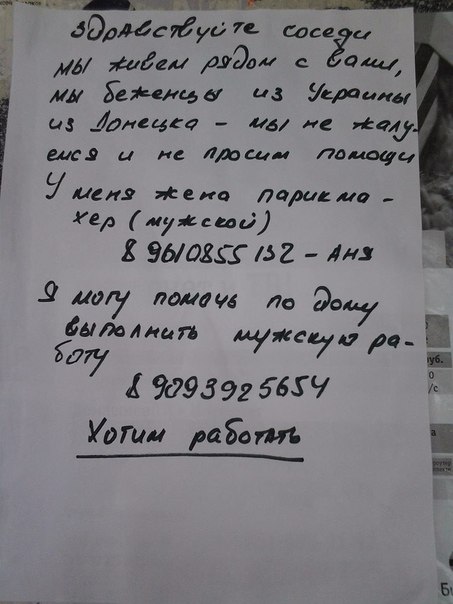 здравствуйте соседи
мы живем рядом с вами,
мы беженцы из Украины
из Донецка - мы не жалу-
емся и не просим помощи
У меня жена парикма-
хер (мужской)
8 9610855 132 - Аня
Я могу помочь по дому
выполнить мужскую ра-
боту
8 9093925654
Хотим работать
уб.
0
/с
а
Б